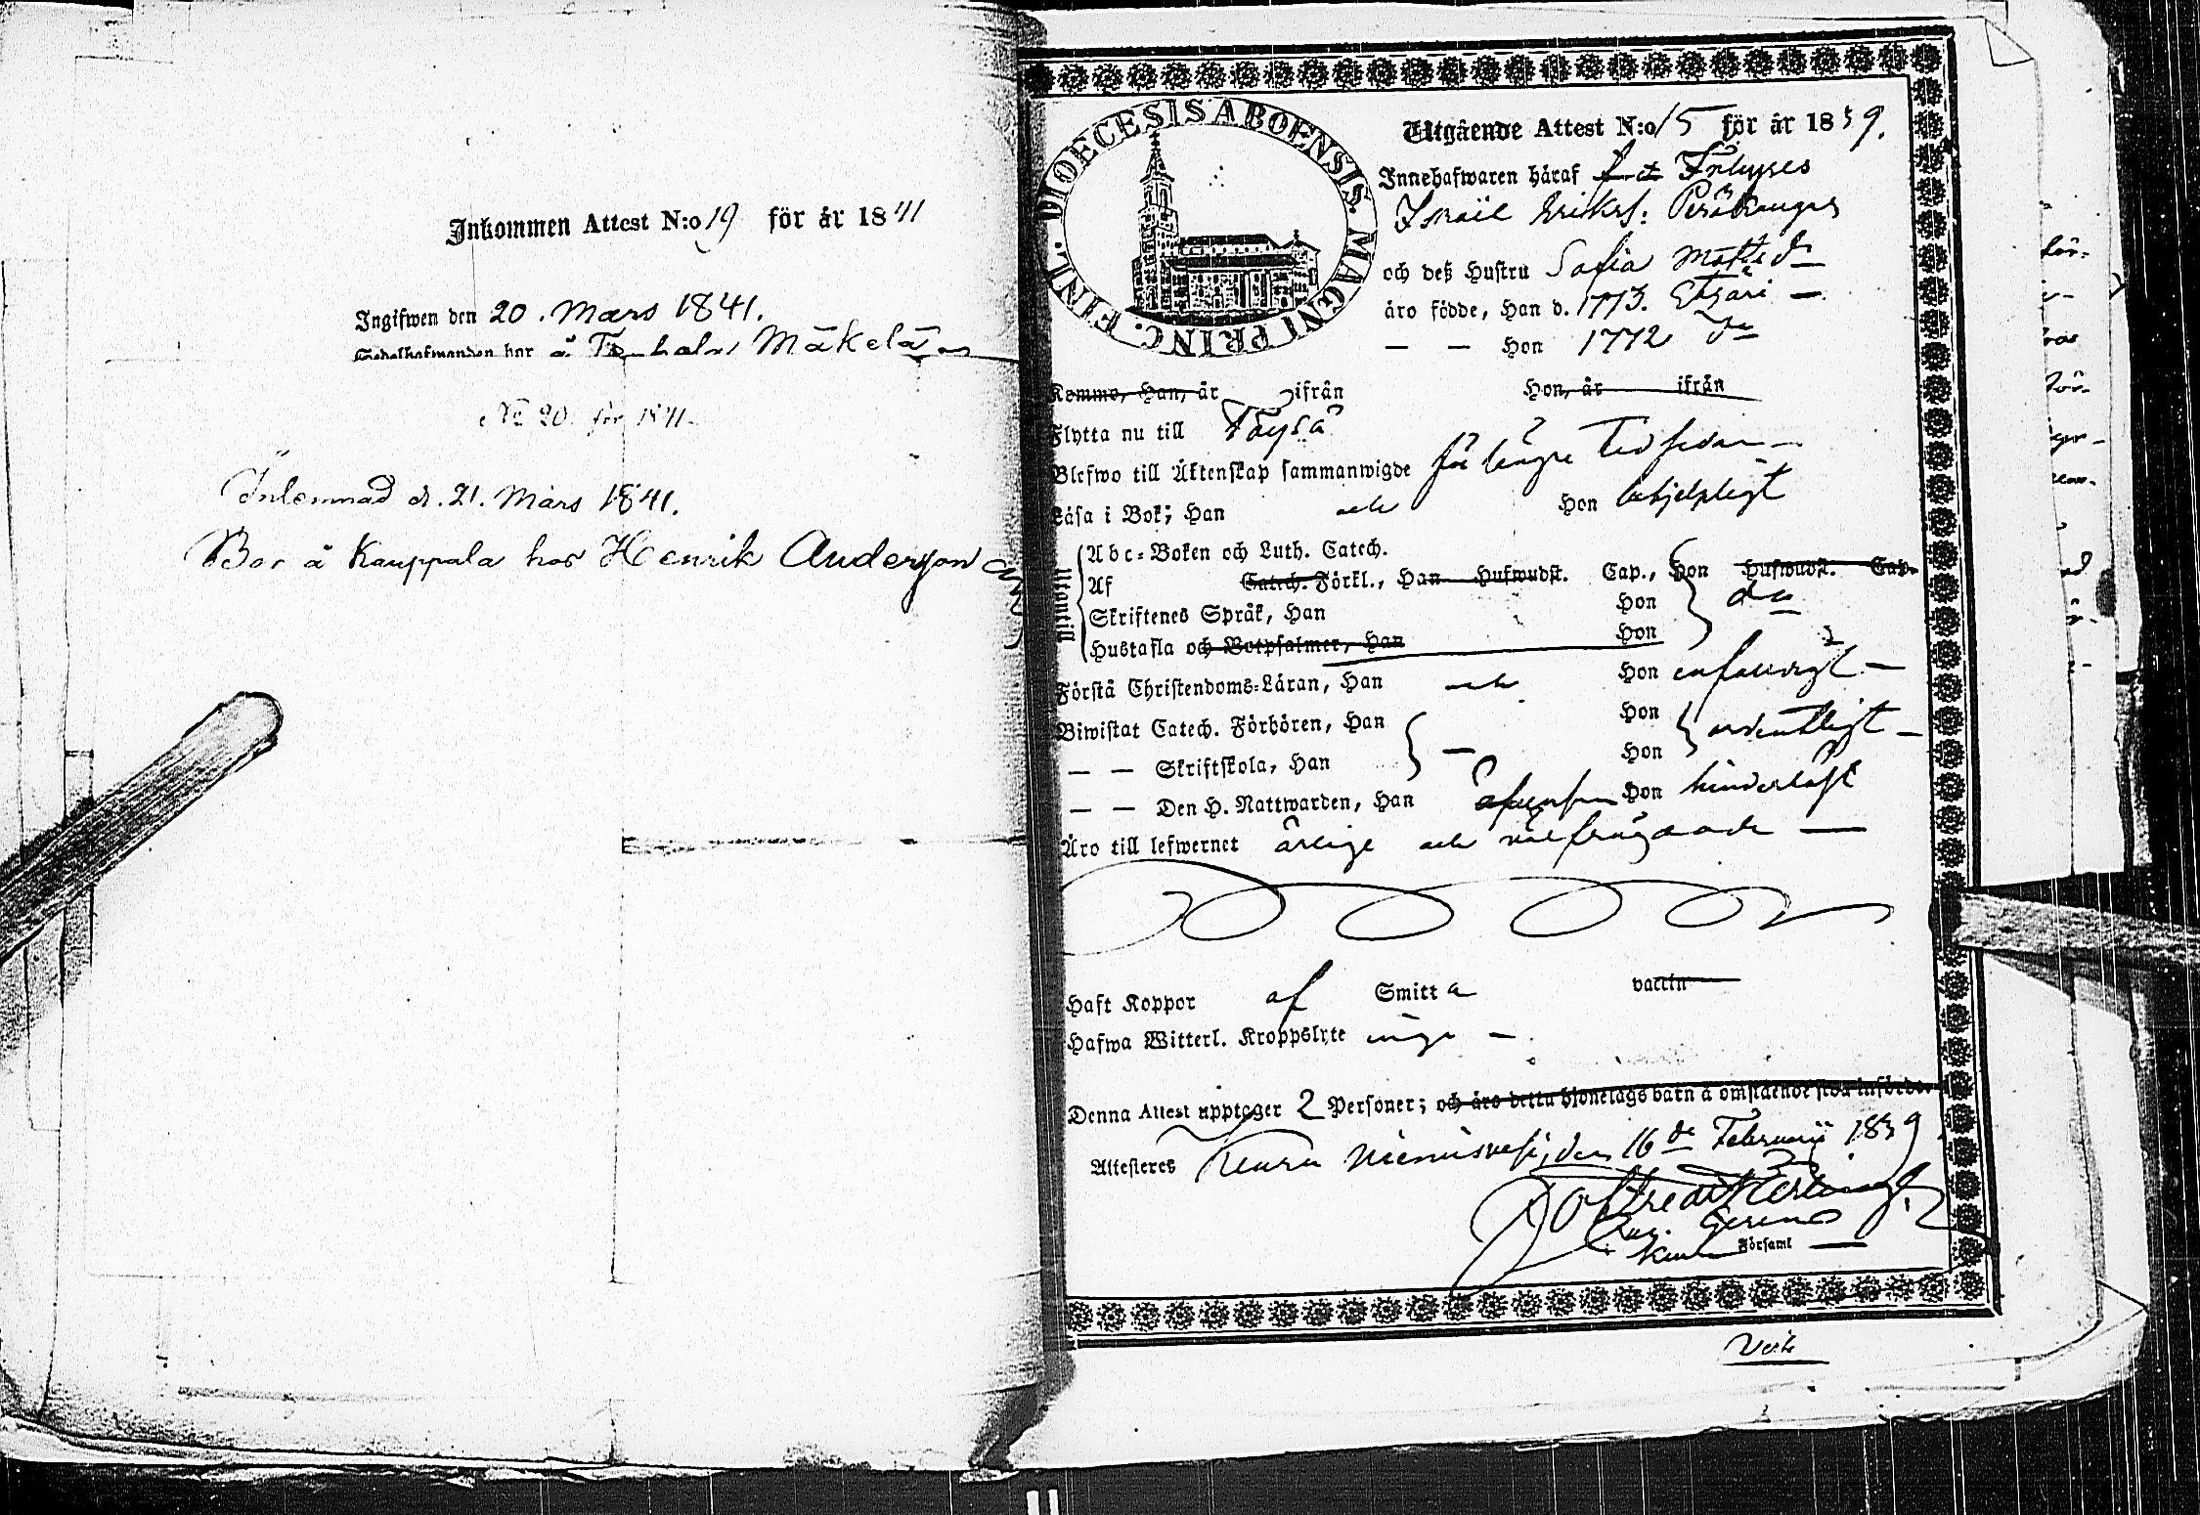 Inkommen Attest N:o 19 för år 1841
Ingifwen den 20. Mars 1841.
Sedelhafwanden bor å Mäkelä
No 20 för 1841.
Inlemnad d. 21. Mars 1841.
Bor å Kauppala hos Henrik Anderson
DIOECESIS ABOENSIS. MAGNI PRINC. FINL.
Utgående Attest N:o 15 för år 1839.
Innehafwaren häraf f. d.
Israël Erikss:
och deß Hustru Sofia Matts dr
äro födde, Han d. 1773. Etseri —
— — Hon 1772 do
Komme, Han, år ifrån Hon, år ifrån
Flytta nu till Töysä
Blefwo till Äktenskap sammanwigde för längre tid sedan —
Läsa i Bok; Han och Hon behjelpligt
Utantill
Abc-Boken och Luth. Catech.
Af Catech. Förkl., Han Hufwudst. Cap., Hon Hufwudst. Cap.
Skriftenes Språk, Han Hon do
Hustafla och Botpsalmer, Han Hon
Förstå Christendoms-Läran, Han och Hon enfaldigt —
Biwistat Catech. Förhören, Han Hon ordentligt —
— — Skriftskola, Han — Hon
— — Den H. Nattwarden, Han äfvensom Hon hinderlöst
Äro till lefwernet ärlige och välfrägdade —
Haft Koppor af Smitta vaccin
Hafwa Witterl. Kroppslyte inga —
Denna Attest upptager 2 Personer; och äro detta hjonelags barn å omstående sida införde.
Attesteras Keuru den 16de Februarii 1839
Församl